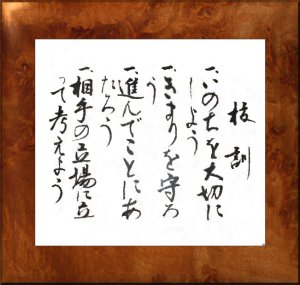 校訓
一、いのちを大切に
しよう
一、きまりを守ろ
う
一、進んでことにあ
たろう
一、相手の立場に立
って考えよう